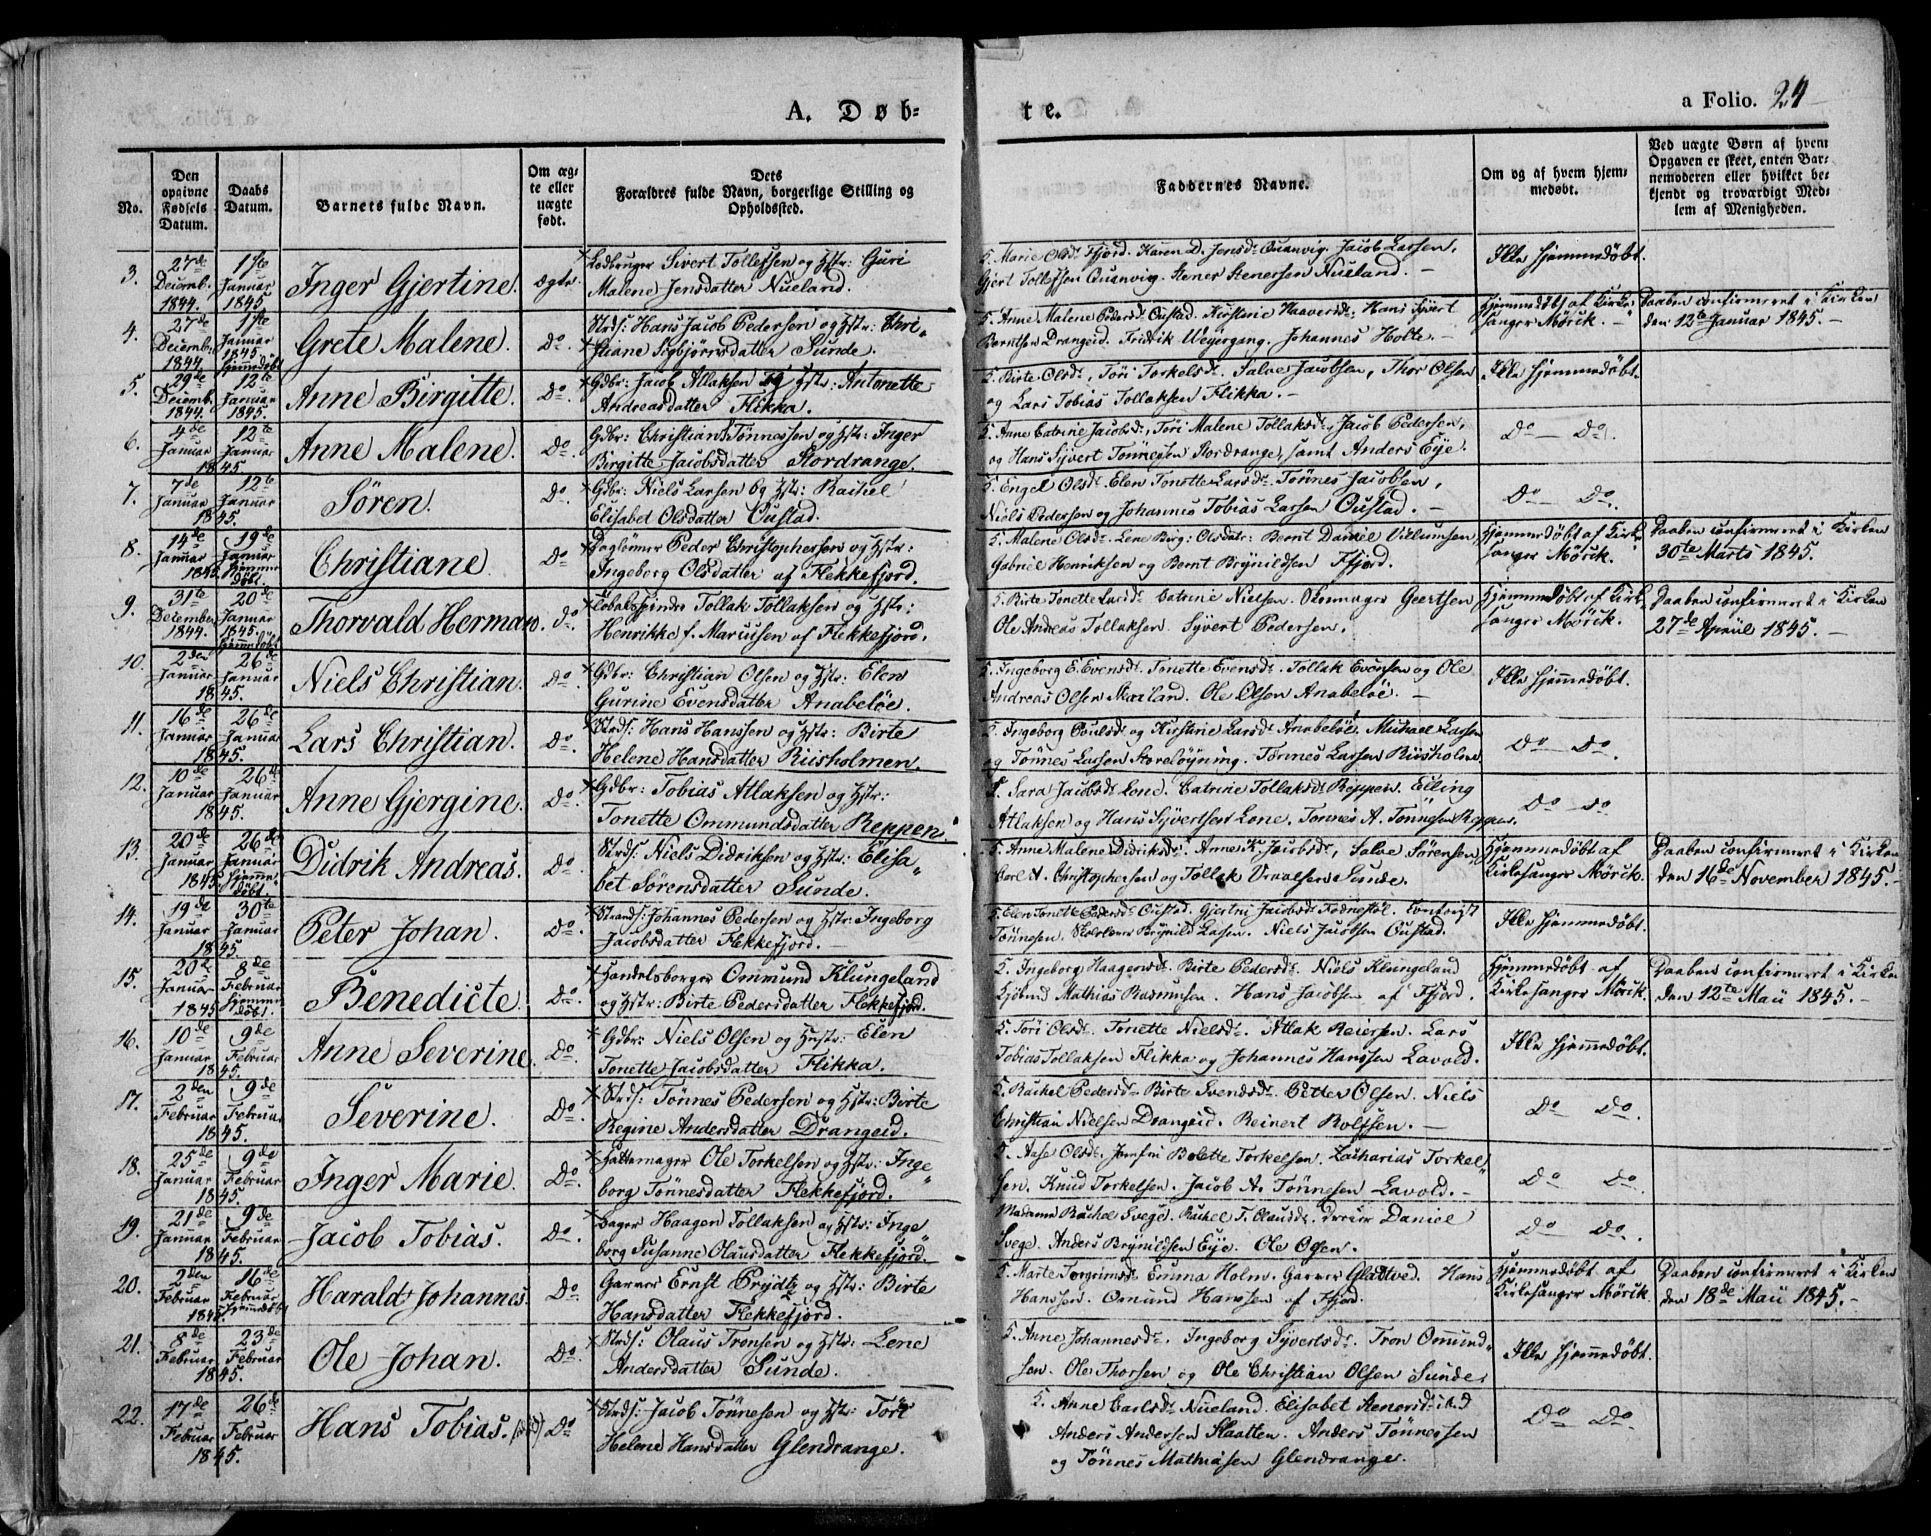 A. Døb=
te.
a Folio. 24
No.
Den opgivne Fødsels Datum.
Daabs Datum.
Barnets fulde Navn.
Om ægte eller uægte født.
Dets Forældres fulde Navn, borgerlige Stilling og Opholdssted.
Faddernes Navne.
Om og af hvem hjemmedøbt.
Ved uægte Børn af hvem Opgaven er skeet, enten Barnemoderen eller hvilket bekjendt og troværdigt Medlem af Menigheden.
3. 27de Decemb. 1844. 1ste Januar 1845 Inger Gjertine. Ægte. Sivert Tollefsen og Hstr: Guri
Malene Jensdatter Nueland.
Marie Olsdt. Fjord. Karen D. Jensdt. Quanvig. Jacob Larsen,
Gjert Tollefsen Quanvig. Stener Stenersen Nueland. —
Ikke hjemmedøbt.
4. 27de Decemb. 1844. 1ste Januar 1845 hjemmedøbt Grete Malene. Do. Strds: Hans Jacob Pedersen og Hstr: Chri-
stiane Sigbjørnsdatter Sunde.
5. Anne Malene Pedersdt. Oustad. Kirstine Haaversdt. Hans Syvert
Berntsen Drangeid. Fridrik Weyergang. Johannes Holte. —
Hjemmedøbt af Kirkesanger Mörck. —
Daaben confirmeret i Kirken den 12te Januar 1845. —
5. 29de Decemb. 1844. 12te Januar 1845. Anne Birgitte. Do. Gdbr: Jacob Atlaksen og Hstr: Antonette
Andreasdatter Flikka.
5. Birte Olsdt, Tóri Torkelsdt. Salve Jacobsen, Thor Olsen
og Lars Tobias Tollaksen Flikka. —
Ikke hjemmedøbt.
6. 4de Januar 1845. 12te Januar Anne Malene. Do. Gdbr: Christian Tönnessen og Hstr: Inger
Birgitte Jacobsdatter Stordrange.
5. Anne Catrine Jacobsdt, Tóri Malene Tollaksdt, Jacob Pedersen,
og Hans Syvert Tönnesen Stordrange, samt Anders Eye.
Do — Do.
7. 7de Januar 1845. 12te Januar Sören. Do. Gdbr: Niels Larsen og Hstr: Rachel
Elisabet Olsdatter Oustad.
5. Engel Olsdt. Elen Tonette Larsdt. Tönnes Jacobsen,
Niels Pedersen og Johannes Tobias Larsen Oustad. —
Do Do.
8. 14de Januar 1845. 19de Januar hjemmedøbt. Christiane. Do Daglönner Peder Christophersen og Hstr:
Ingeborg Olsdatter af Flekkefjord.
5. Malene Olsdt. Lene Birg: Olsdatr: Bernt Daniel Villumsen,
Gabriel Henriksen og Bernt Brynildsen Ffjord.
Hjemmedøbt af Kirkesanger Mörck.
Daaben confirmeret i Kirken 30te Marts 1845.
9. 31te December 1844. 20de Januar 1845. hjemmedøbt Thorvald Herman. Do. Tobakspinder Tollak Tollaksen og Hstr:
Henrikke f. Marcusen af Flekkefjord.
5. Birte Tonette Larsdt. Catrine Nielsen. Geertsen
Ole Andreas Tollaksen. Syvert Pedersen.
Hjemmedøbt af Kirkesanger Mörck.
Daaben confirmeret i Kirken 27de April 1845. —
10. 2den Januar 1845. 26de Januar Niels Christian. Do. Gdbr: Christian Olsen og Hstr: Elen
Gurine Evensdatter Anabelöe.
5. Ingeborg E. Evensdt. Tonette Evensdt. Tollak Evensen og Ole
Andreas Olsen. Ole Olsen Anabelöe. —
Ikke hjemmedøbt.
11. 16de Januar 1845. 26de Januar Lars Christian. Do. Strds: Hans Hanssen og Hstr: Birte
Helene Hansdatter Riisholmen.
5. Ingeborg Poulsdt og Kirstine Larsdt. Anabelöe. Michael Larsen
og Tönnes Larsen Storelöyning. Tönnes Larsen Riisholmen
Do — Do.
12. 10de Januar 1845. 26de Januar Anne Gjergine. Do. Gdbr: Tobias Atlaksen og Hstr:
Tonette Ommundsdatter Reppen.
5. Sara Jacobsdt. Lone. Catrine Tollaksdt. Reppen. Elling
Atlaksen og Hans Syvertsen Lone. Tönnes A. Tönnesen Reppen.
Do — Do
13. 20de Januar 1845. 26de Januar hjemmedøbt. Didrik Andreas. Do. Strds: Niels Didriksen og Hstr: Elisa-
bet Sörensdatter Sunde.
5. Anne Malene Didriksdt. Anne K. Jacobsdt, Salve Sörensen
Carl A. Christophersen og Tollak Sunde.
Hjemmedøbt af Kirkesanger Mörck.
Daaben confirmeret i Kirken den 16de November 1845. —
14. 19de Januar 1845. 30te Januar Peter Johan. Do. Strands: Johannes Pedersen og Hstr: Ingeborg
Jacobsdatter Flekkefjord. —
5. Elen Tonette Pedersdt. Oustad. Jacobsdt.
Tönnesen. Brynild Lassen. Niels Jacobsen Oustad.
Ikke hjemmedøbt.
15. 20de Januar 1845. 8de Februar hjemmedøbt. Benedicte. Do. Handelsborger Ommund Klungeland
og Hstr: Birte Pedersdatter Flekkefjord.
5. Ingeborg Haagensdt. Birte Pedersdt. Niels Klungeland
Mathias Rasmussen. Hans Jacobsen af Ffjord.
Hjemmedøbt af Kirkesanger Mörck.
Daaben confirmeret i Kirken den 12te Maii 1845. —
16. 10de Januar 1845. 9de Februar Anne Severine. Do. Gdbr: Niels Olsen og Hustr: Elen
Tonette Jacobsdatter Flikka.
5. Tóri Olsdt. Tonette Nielsdt. Atlak Reiersen. Lars
Tobias Tollaksen Flikka og Johannes Hanssen Lavold.
Ikke hjemmedøbt.
17. 2den Februar 1845. 9de Februar Severine. Do. Strds: Tönnes Pedersen og Hstr: Birte
Regine Andersdatter Drangeid.
5. Rachel Pedersdt. Birte Svendsdt. Petter Olsen. Niels
Christian Nielsen Drangeid. Reinert Rolfsen. —
Do Do.
18. 25de Januar 1845. 9de Februar Inger Marie. Do. Hattemager Ole Torkelsen og Hstr: Inge-
borg Tönnesdatter Flekkefjord.
5. Aase Olsdt. Bolette Torkelsen. Zacharias Torkel-
sen. Knud Torkelsen. Jacob A. Tönnesen Lavold. —
Do Do.
19. 21de Januar 1845. 9de Februar Jacob Tobias. Do. Bager Haagen Tollaksen og Hstr: Inge-
borg Susanne Olausdatter Flekkefjord.
Madame Rachel Svege. Rachel T. Daniel
Svege. Anders Brynildsen Eye. Ole Olsen.
Do Do.
20. 2den Februar 1845. 16de Februar hjemmedøbt Harald Johannes. Do. Garver Ernst Prydtz og Hstr: Birte
Hansdatter Flekkefjord.
5. Marte Torgrimsdt. Emma Holm. Garver Gladtved. Hans
Hanssen. Omund Hanssen af Ffjord.
Hjemmedøbt af Kirkesanger Mörck.
Daaben confirmeret i Kirken den 18de Maii 1845. —
21. 8de Februar 1845. 23de Februar Ole Johan. Do. Strds: Olaus Tronsen og Hstr: Lene
Andersdatter Sunde.
5. Anne Johannesdt. Ingeborg Syvertsdt. Tron Ommund-
sen. Ole Thorsen og Ole Christian Olsen Sunde
Ikke hjemmedøbt.
22. 17de Februar 1845. 26de Februar Hans Tobias. Do Strds: Jacob Tönnesen og Hstr: Tóri
Helene Hansdatter Glendrange.
5. Anne Carlsdt. Nueland. Elisabet Stenersdt. ibid
Anders Andersen Slaatten. Anders Tönnessen
og Tönnes Mathiasen Glendrange.
Do Do